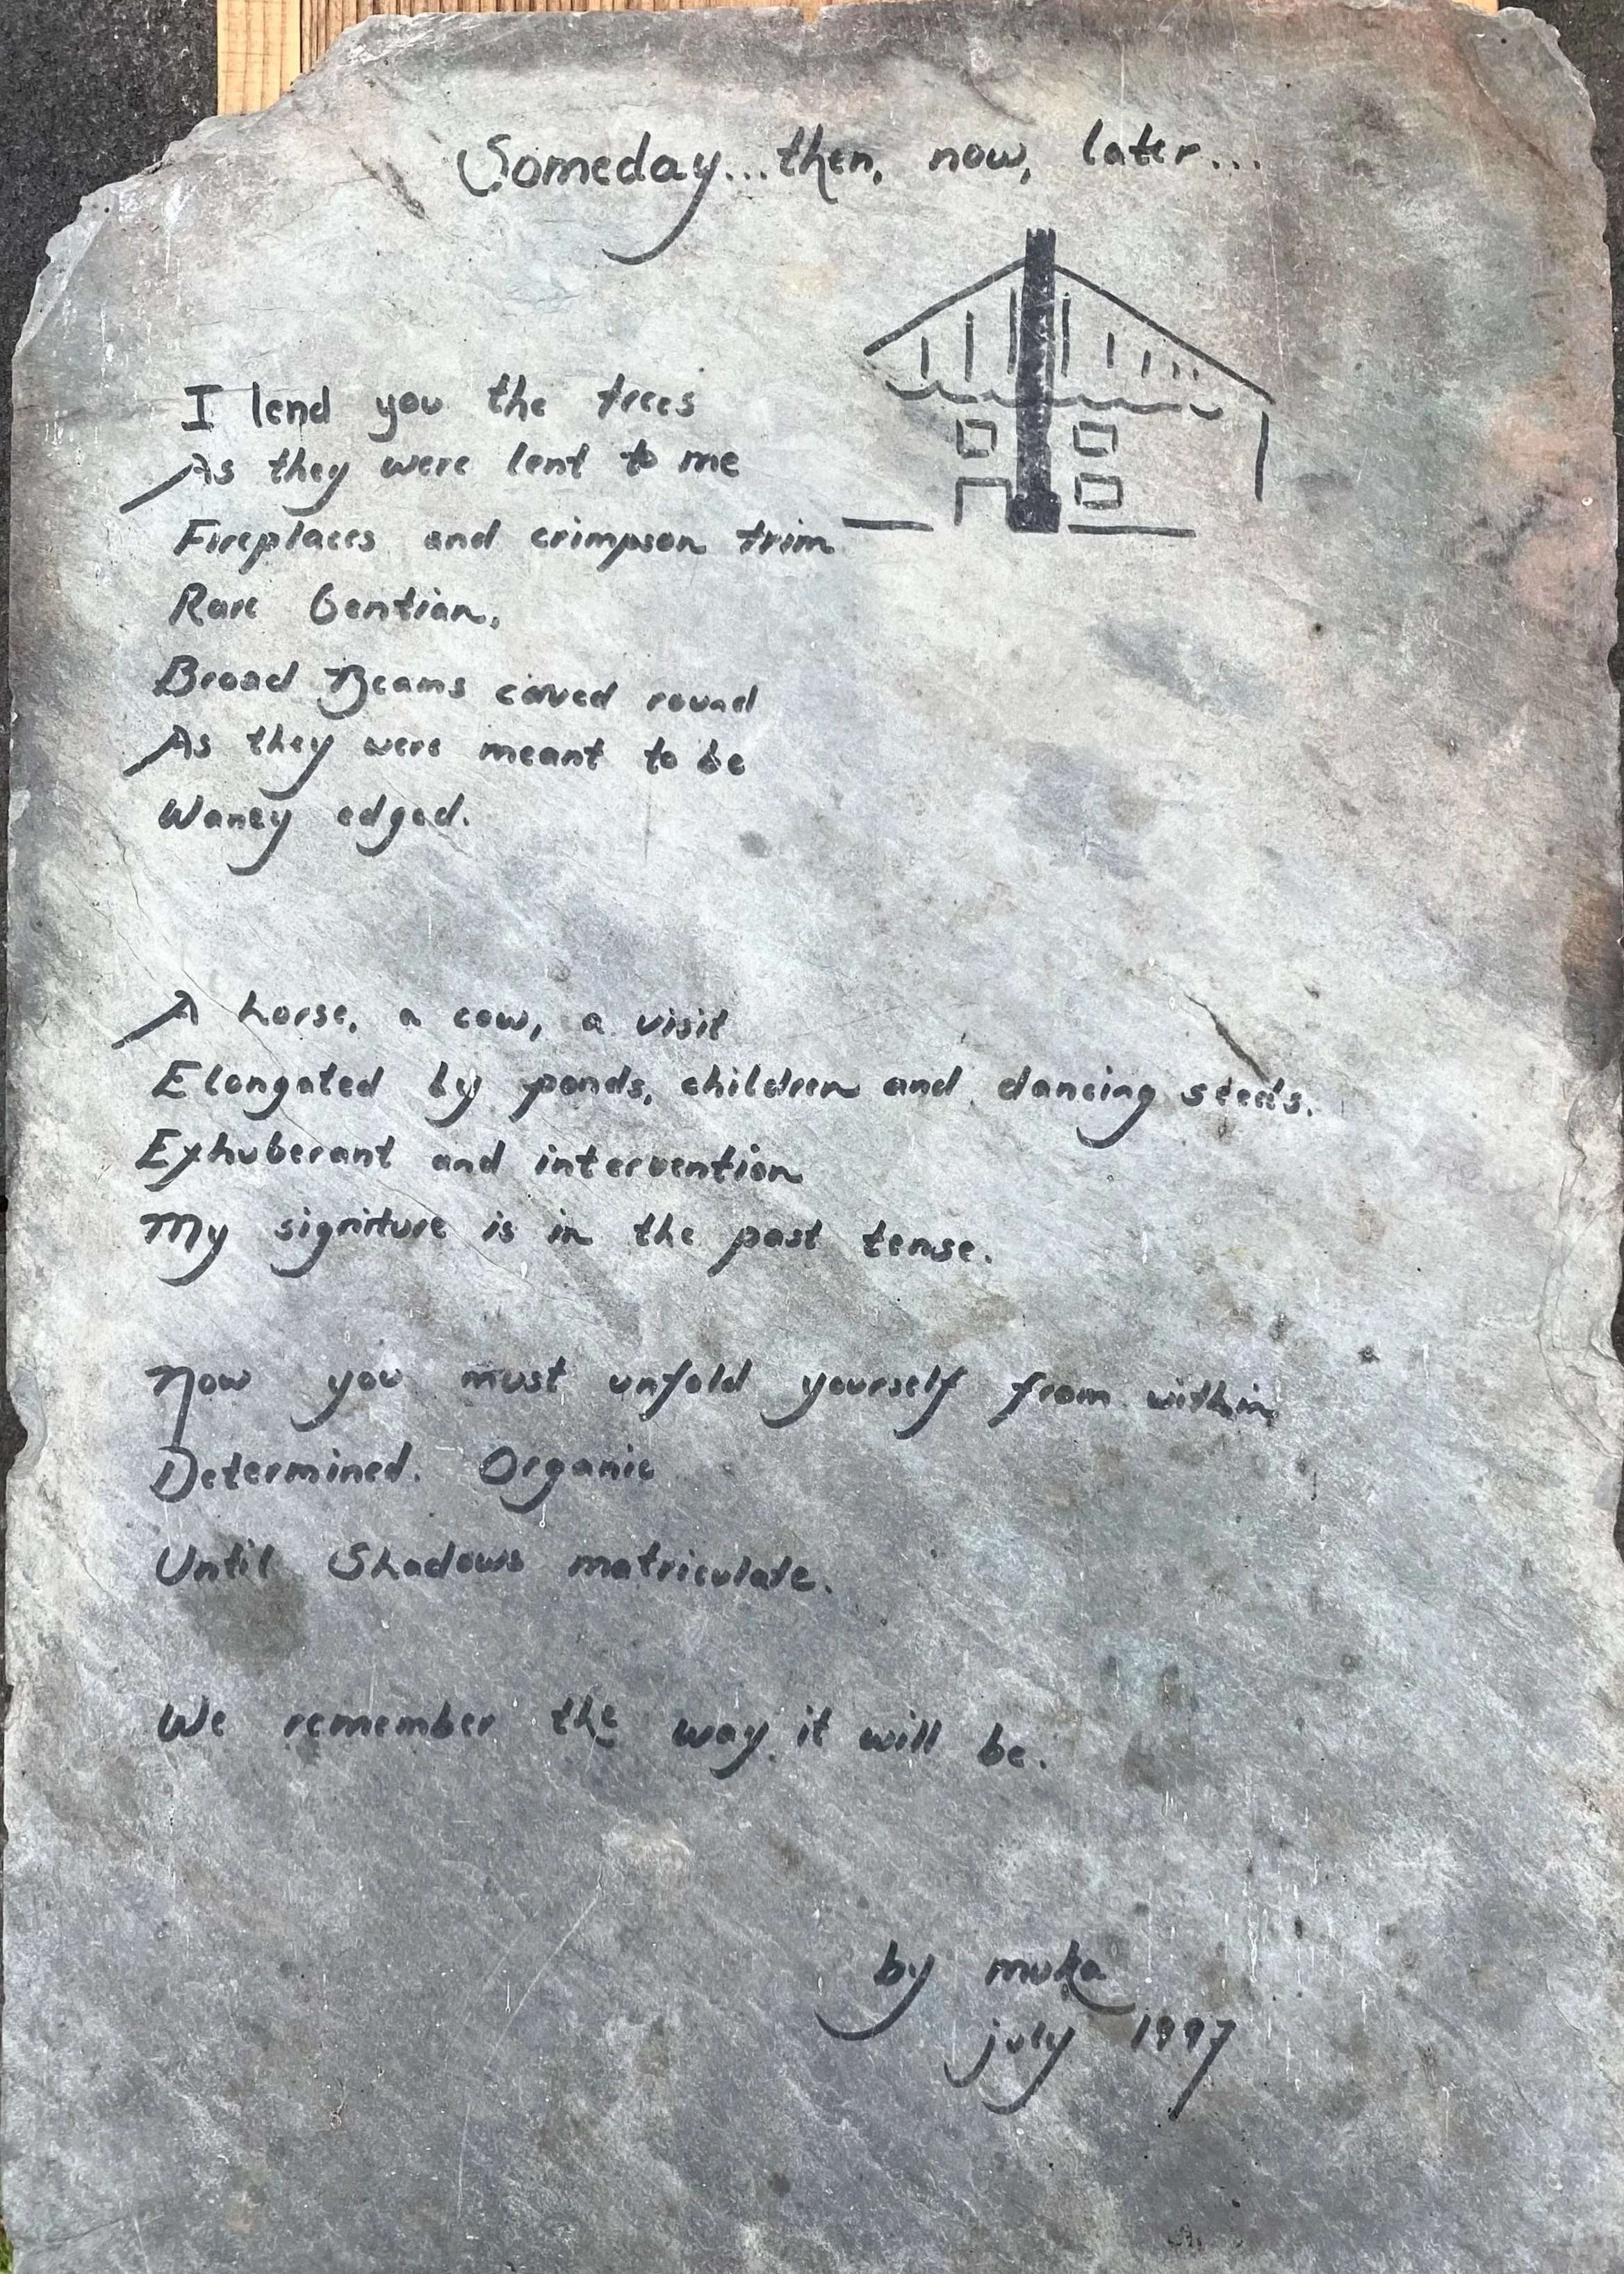 Someday...then, now, later...
I lend you the trees
As they were lent to me
Fireplaces and crimpson trim
Rare Gentian,
Broad Beams caved round
As they were meant to be
Waney edged.
A horse, a cow, a visit
Elongated by ponds, children and dancing steeds.
Exhuberant and intervention
My signiture is in the past tense.
Now you must unfold yourself from within
Determined. Organic
Until Shadows matriculate.
We remember the way it will be.
by muka
july 1997